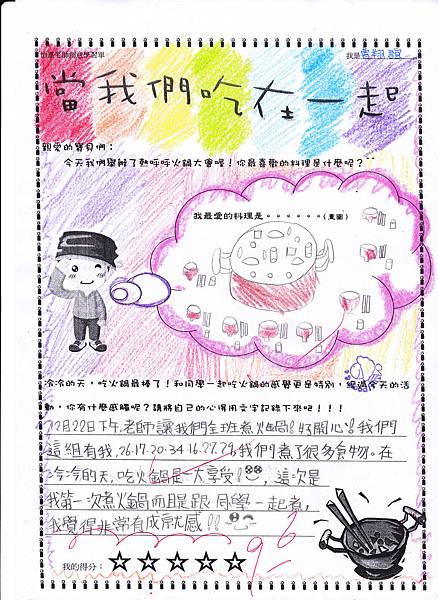 怡慧老師創意學習單
我是曾翔誼
當我們吃在一起
親愛的寶貝們：
今天我們舉辦了熱呼呼火鍋大賽喔！你最喜歡的料理是什麼呢？
我最愛的料理是。。。。。。(畫圖)
冷冷的天，吃火鍋最棒了！和同學一起吃火鍋的感覺更是特別，經過今天的活
動，你有什麼感觸呢？請將自己的心得用文字記錄下來吧！！！
12月22日下午，老師讓我們全班煮火鍋！好開心！我們
這組有我.26.17.20.34.16.27.29，我們煮了很多食物。在
冷冷的天，吃火鍋是一大享受！，這次是
我第一次煮火鍋而且是跟同學一起煮，
我覺得非常有成就感！！
我的得分：☆☆☆☆☆